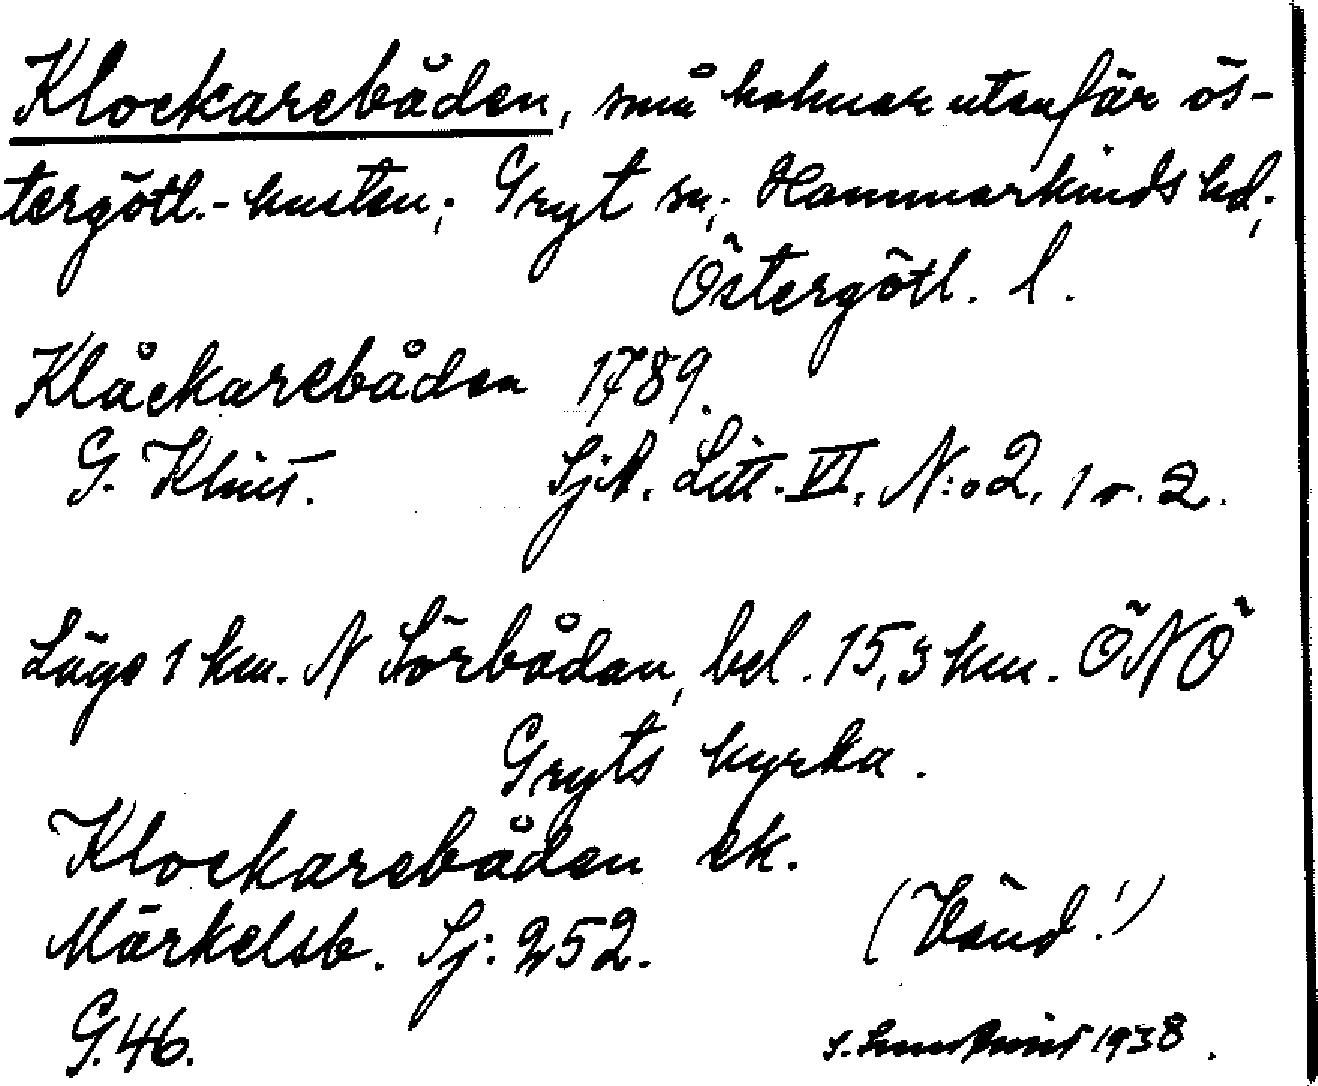 Klockarebåden, små holmar utanför ös-
tergötl.-kusten; Gryt sn; Hammarkinds hd;
Östergötl. l.
Klåckarebåden 1789.
G. Klint. SjA. Litt. VI. N:o 2. 1 o. 2.
Läge 1 km. N Sörbådan, bel. 15,3 km. ÖNÖ
Gryts kyrka.
Klockarebåden ek.
Märkelsb. Sj: 252. (Vänd!)
G. 46. 1938.